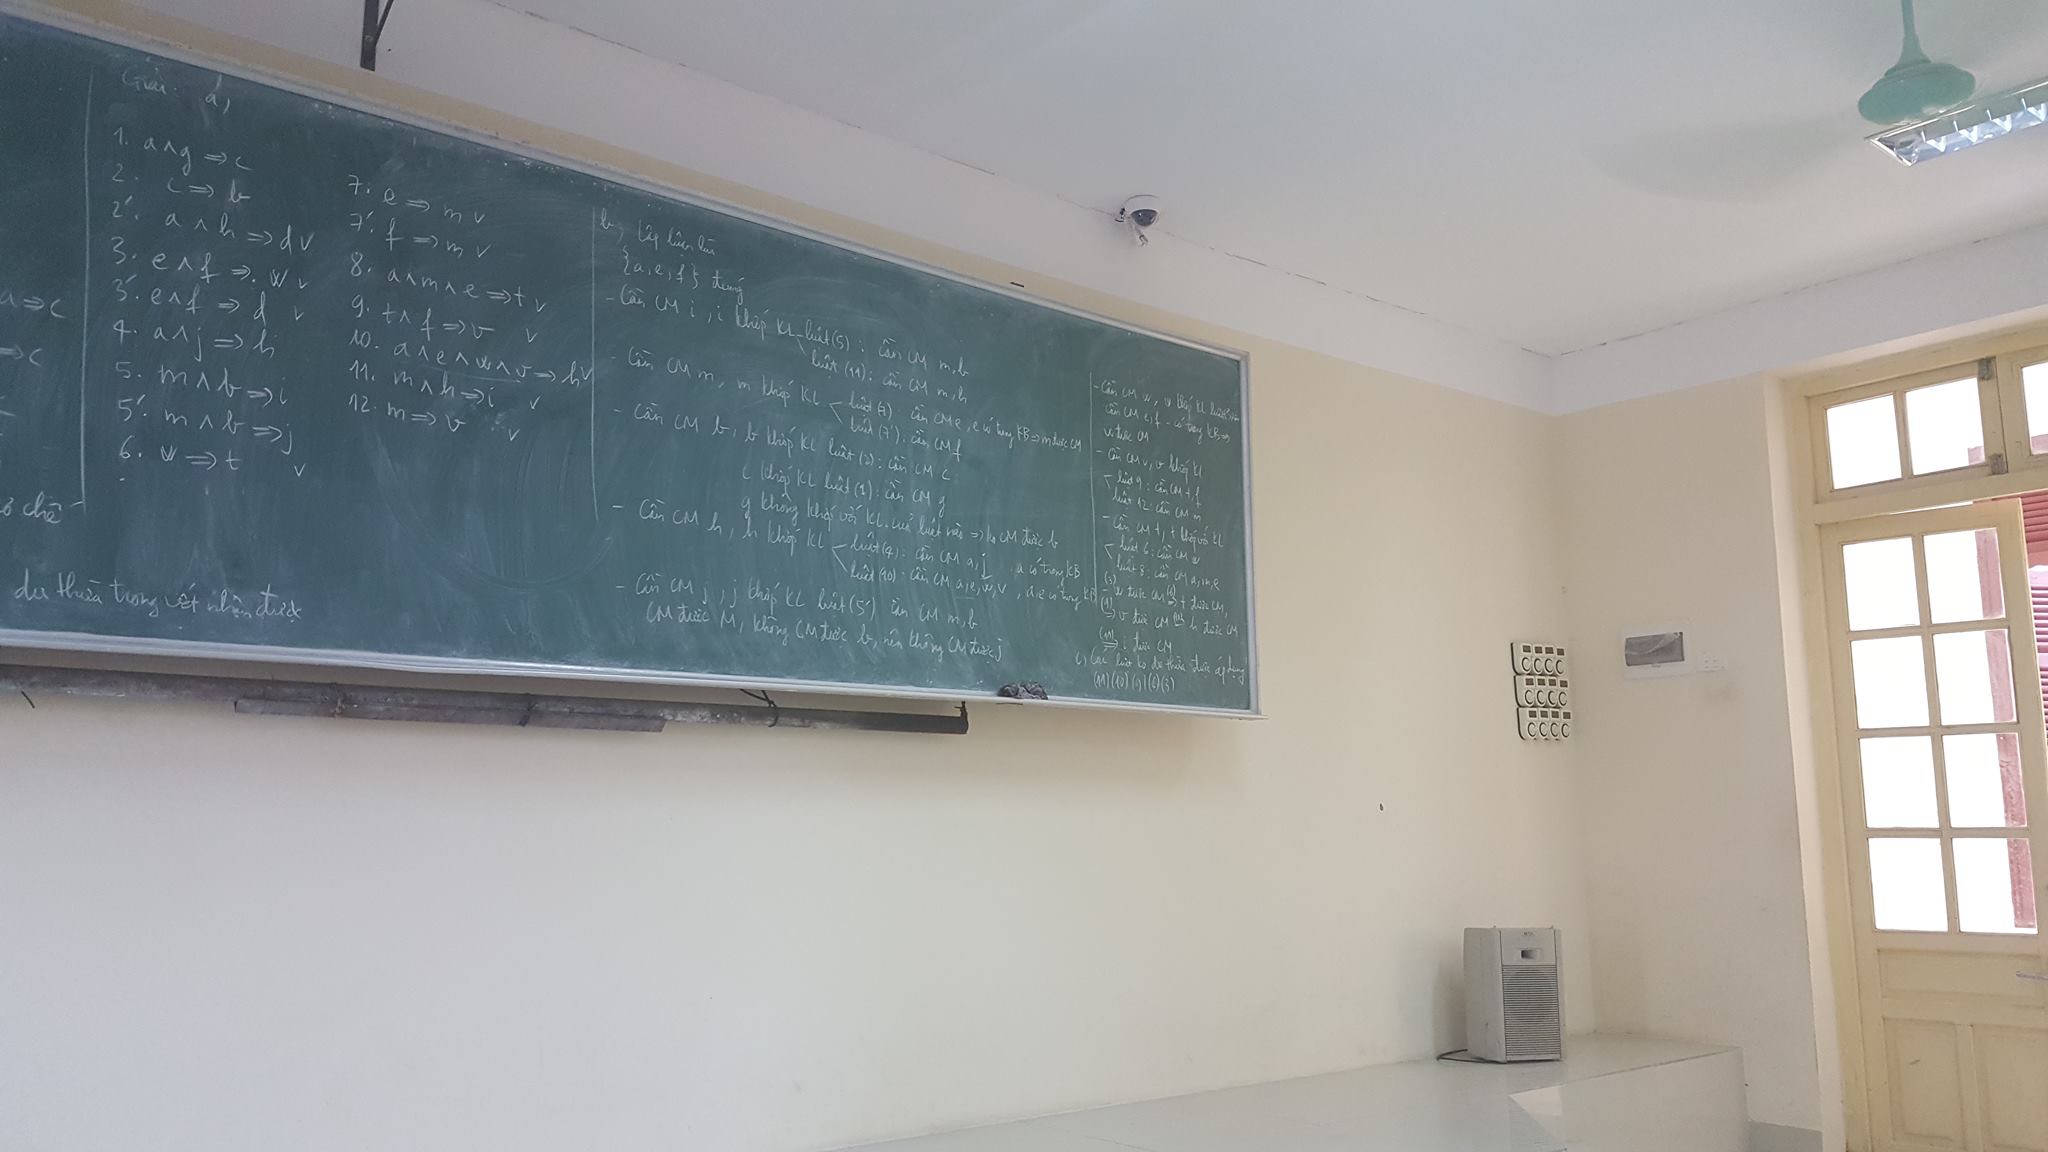 a => c
=> c
dư thừa trong vết nhận được
Giải: a,
1. a ∧ g => c
2. c => b
2'. a ∧ h => d v
3. e ∧ f => w v
3'. e ∧ f => d v
4. a ∧ j => h
5. m ∧ b => i
5'. m ∧ b => j
6. w => t v
7. e => m v
7'. f => m v
8. a ∧ m ∧ e => t v
9. t ∧ f => v v
10. a ∧ e ∧ w ∧ v => h v
11. m ∧ h => i v
12. m => v v
b, Lập luận lùi
{a, e, f} đúng
- Cần CM i, i khớp KL luật (5): cần CM m, b
luật (11): cần CM m, h
- Cần CM m, m khớp KL luật (7): cần CM e, e có trong KB => m được CM
luật (7'): cần CM f
- Cần CM b, b khớp KL luật (2): cần CM c
c khớp KL luật (1): cần CM g
g không khớp với KL của luật nào => ko CM được b
- Cần CM h, h khớp KL luật (4): cần CM a, j, a có trong KB
luật (10): cần CM a, e, w, v, a, e có trong KB
- Cần CM j, j khớp KL luật (5') cần CM m, b
CM được M, không CM được b, nên không CM được j
- Cần CM w, w khớp KL luật
cần CM e, f - có trong KB =>
w được CM
- Cần CM v, v khớp KL
luật 9: cần CM t, f
luật 12: cần CM m
- Cần CM t, t khớp với KL
luật 6: cần CM w
luật 8: cần CM a, m, e
(3) - w được CM (6) => t được CM,
(9) => v được CM (10) => h được CM
(11) => i được CM
c) Các luật ko dư thừa được áp dụng
(11) (10) (9) (6) (3)